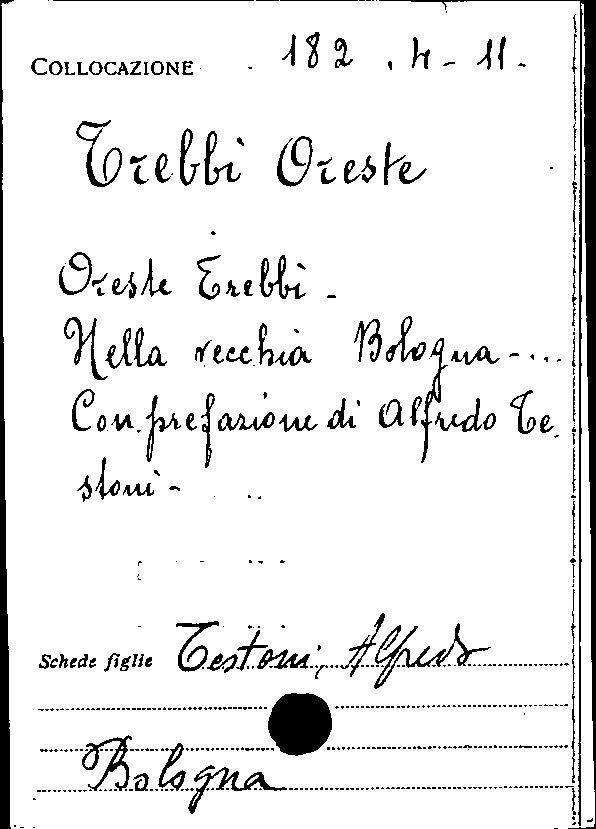 COLLOCAZIONE 182 . h - 11 -
Trebbi Oreste
Oreste Trebbi -
Nella vecchia Bologna - ...
Con prefazione di Alfredo Te
stoni -
Schede figlie Testoni, Alfredo
Bologna